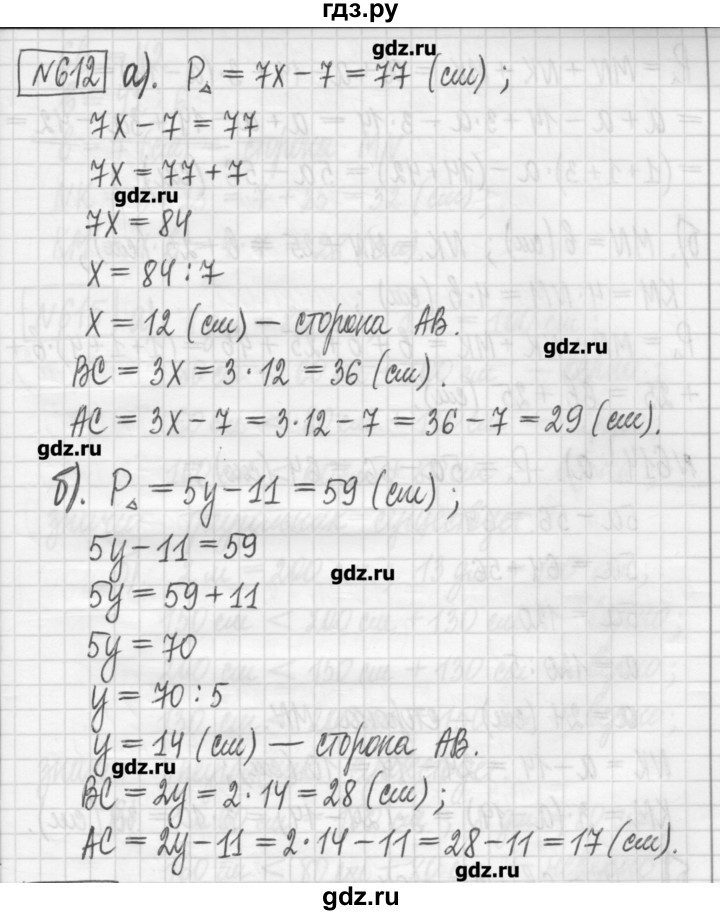 гдз.ру
gdz.ru
№612 а). P△ = 7x − 7 = 77 (см) ;
7x − 7 = 77
7x = 77 + 7
gdz.ru
7x = 84
x = 84 : 7
x = 12 (см) — сторона AB.
gdz.ru
BC = 3x = 3 · 12 = 36 (см).
AC = 3x − 7 = 3·12 − 7 = 36 − 7 = 29 (см).
gdz.ru
б). P△ = 5y − 11 = 59 (см) ;
5y − 11 = 59
gdz.ru
5y = 59 + 11
5y = 70
y = 70 : 5
y = 14 (см) — сторона AB.
gdz.ru
BC = 2y = 2 · 14 = 28 (см) ;
AC = 2y − 11 = 2·14 − 11 = 28 − 11 = 17 (см).
gdz.ru
gdz.ru